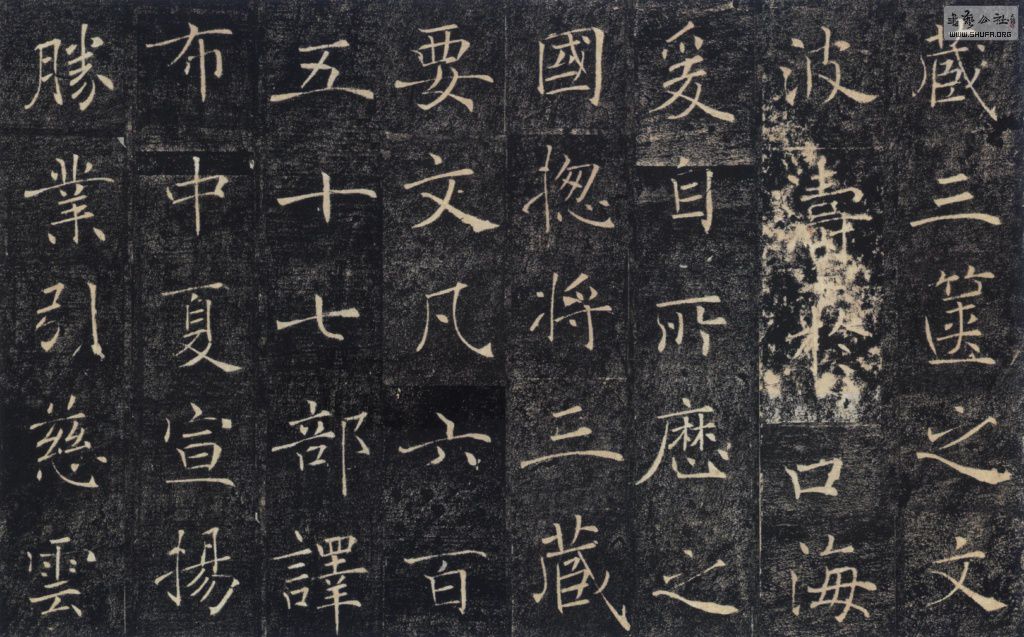 藏三篋之文
波濤於口海
爰自所歷之
國揔将三藏
要文凡六百
五十七部譯
布中夏宣揚
勝業引慈雲
WWW.SHUFA.ORG